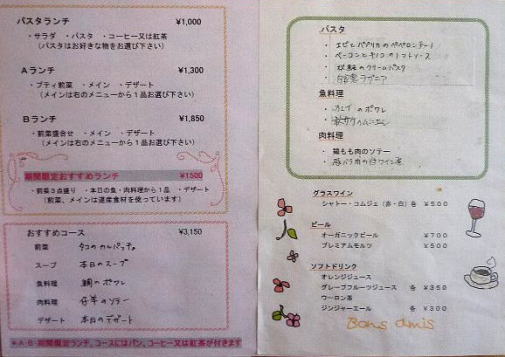 パスタランチ ¥1,000
・サラダ ・パスタ ・コーヒー又は紅茶
(パスタはお好きな物をお選び下さい)
Aランチ ¥1,300
・プティ前菜 ・メイン ・デザート
(メインは右のメニューから1品お選び下さい)
Bランチ ¥1,850
・前菜盛合せ ・メイン ・デザート
(メインは右のメニューから1品お選び下さい)
期間限定おすすめランチ ¥1500
・前菜3点盛り ・本日の魚・肉料理から1品 ・デザート
(前菜、メインは道産食材を使っています)
おすすめコース ¥3,150
前菜 タコのカルパッチョ
スープ 本日のスープ
魚料理 鯛のポワレ
肉料理 仔羊のソテー
デザート 本日のデザート
※A・B・期間限定ランチ、コースにはパン、コーヒー又は紅茶が付きます
パスタ
・エビとパプリカのペペロンチーノ
・ベーコンとキノコのトマトソース
・のクリームパスタ
魚料理
・のポワレ
肉料理
・鶏もも肉のソテー
・豚バラ肉の白ワイン煮
グラスワイン
シャトー・コムジェ(赤・白)各 ¥500
ビール
オーガニックビール ¥700
プレミアムモルツ ¥500
ソフトドリンク
オレンジジュース
グレープフルーツジュース 各 ¥350
ウーロン茶
ジンジャーエール 各 ¥300
Bons amis